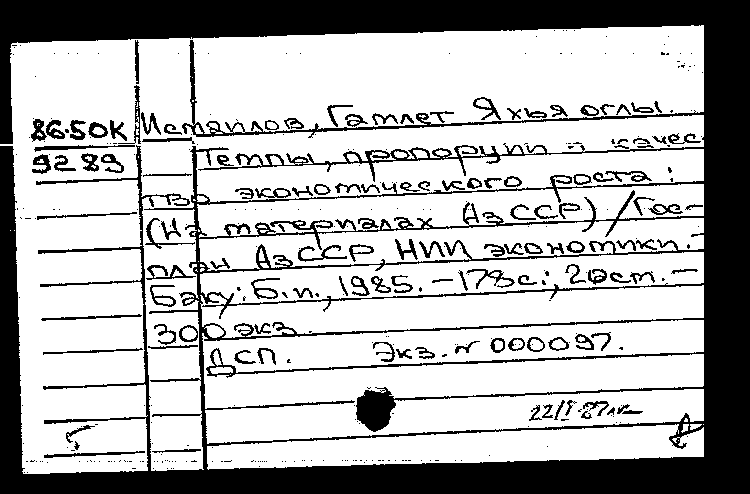 86-50К Исмаилов, Гамлет Яхья оглы.
9289 Темпы, пропорции и качес-
тво экономического роста:
(На материалах АзССР) / Гос-
план АзССР, НИИ экономики. -
Баку: Б.и., 1985. - 178с.; 20см. -
300экз.
ДСП. Экз. № 000097.
22/I-87
5